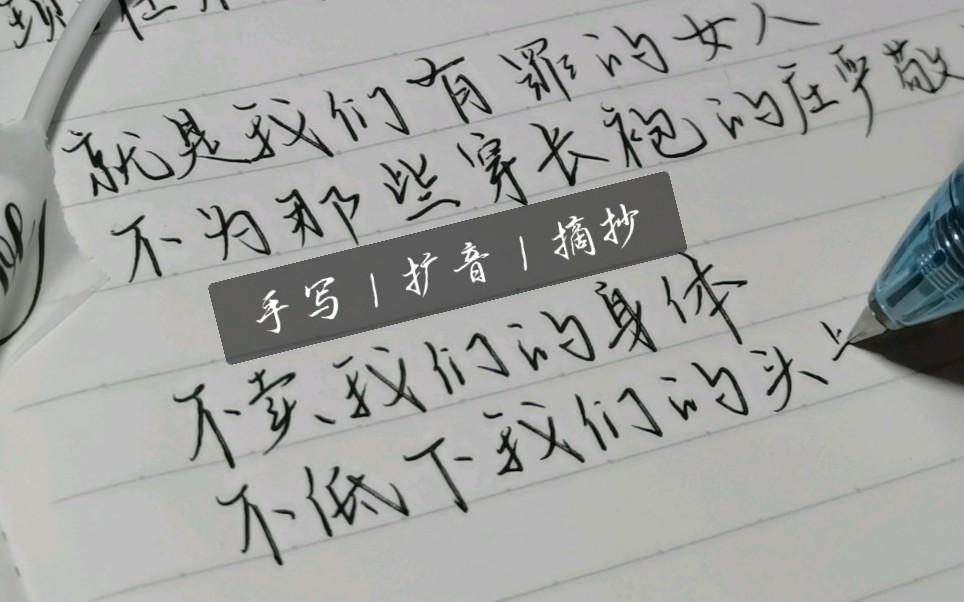 就是我们有罪的女人
不为那些穿长袍的庄严敬
手写 | 扩音 | 摘抄
不卖我们的身体
不低下我们的头